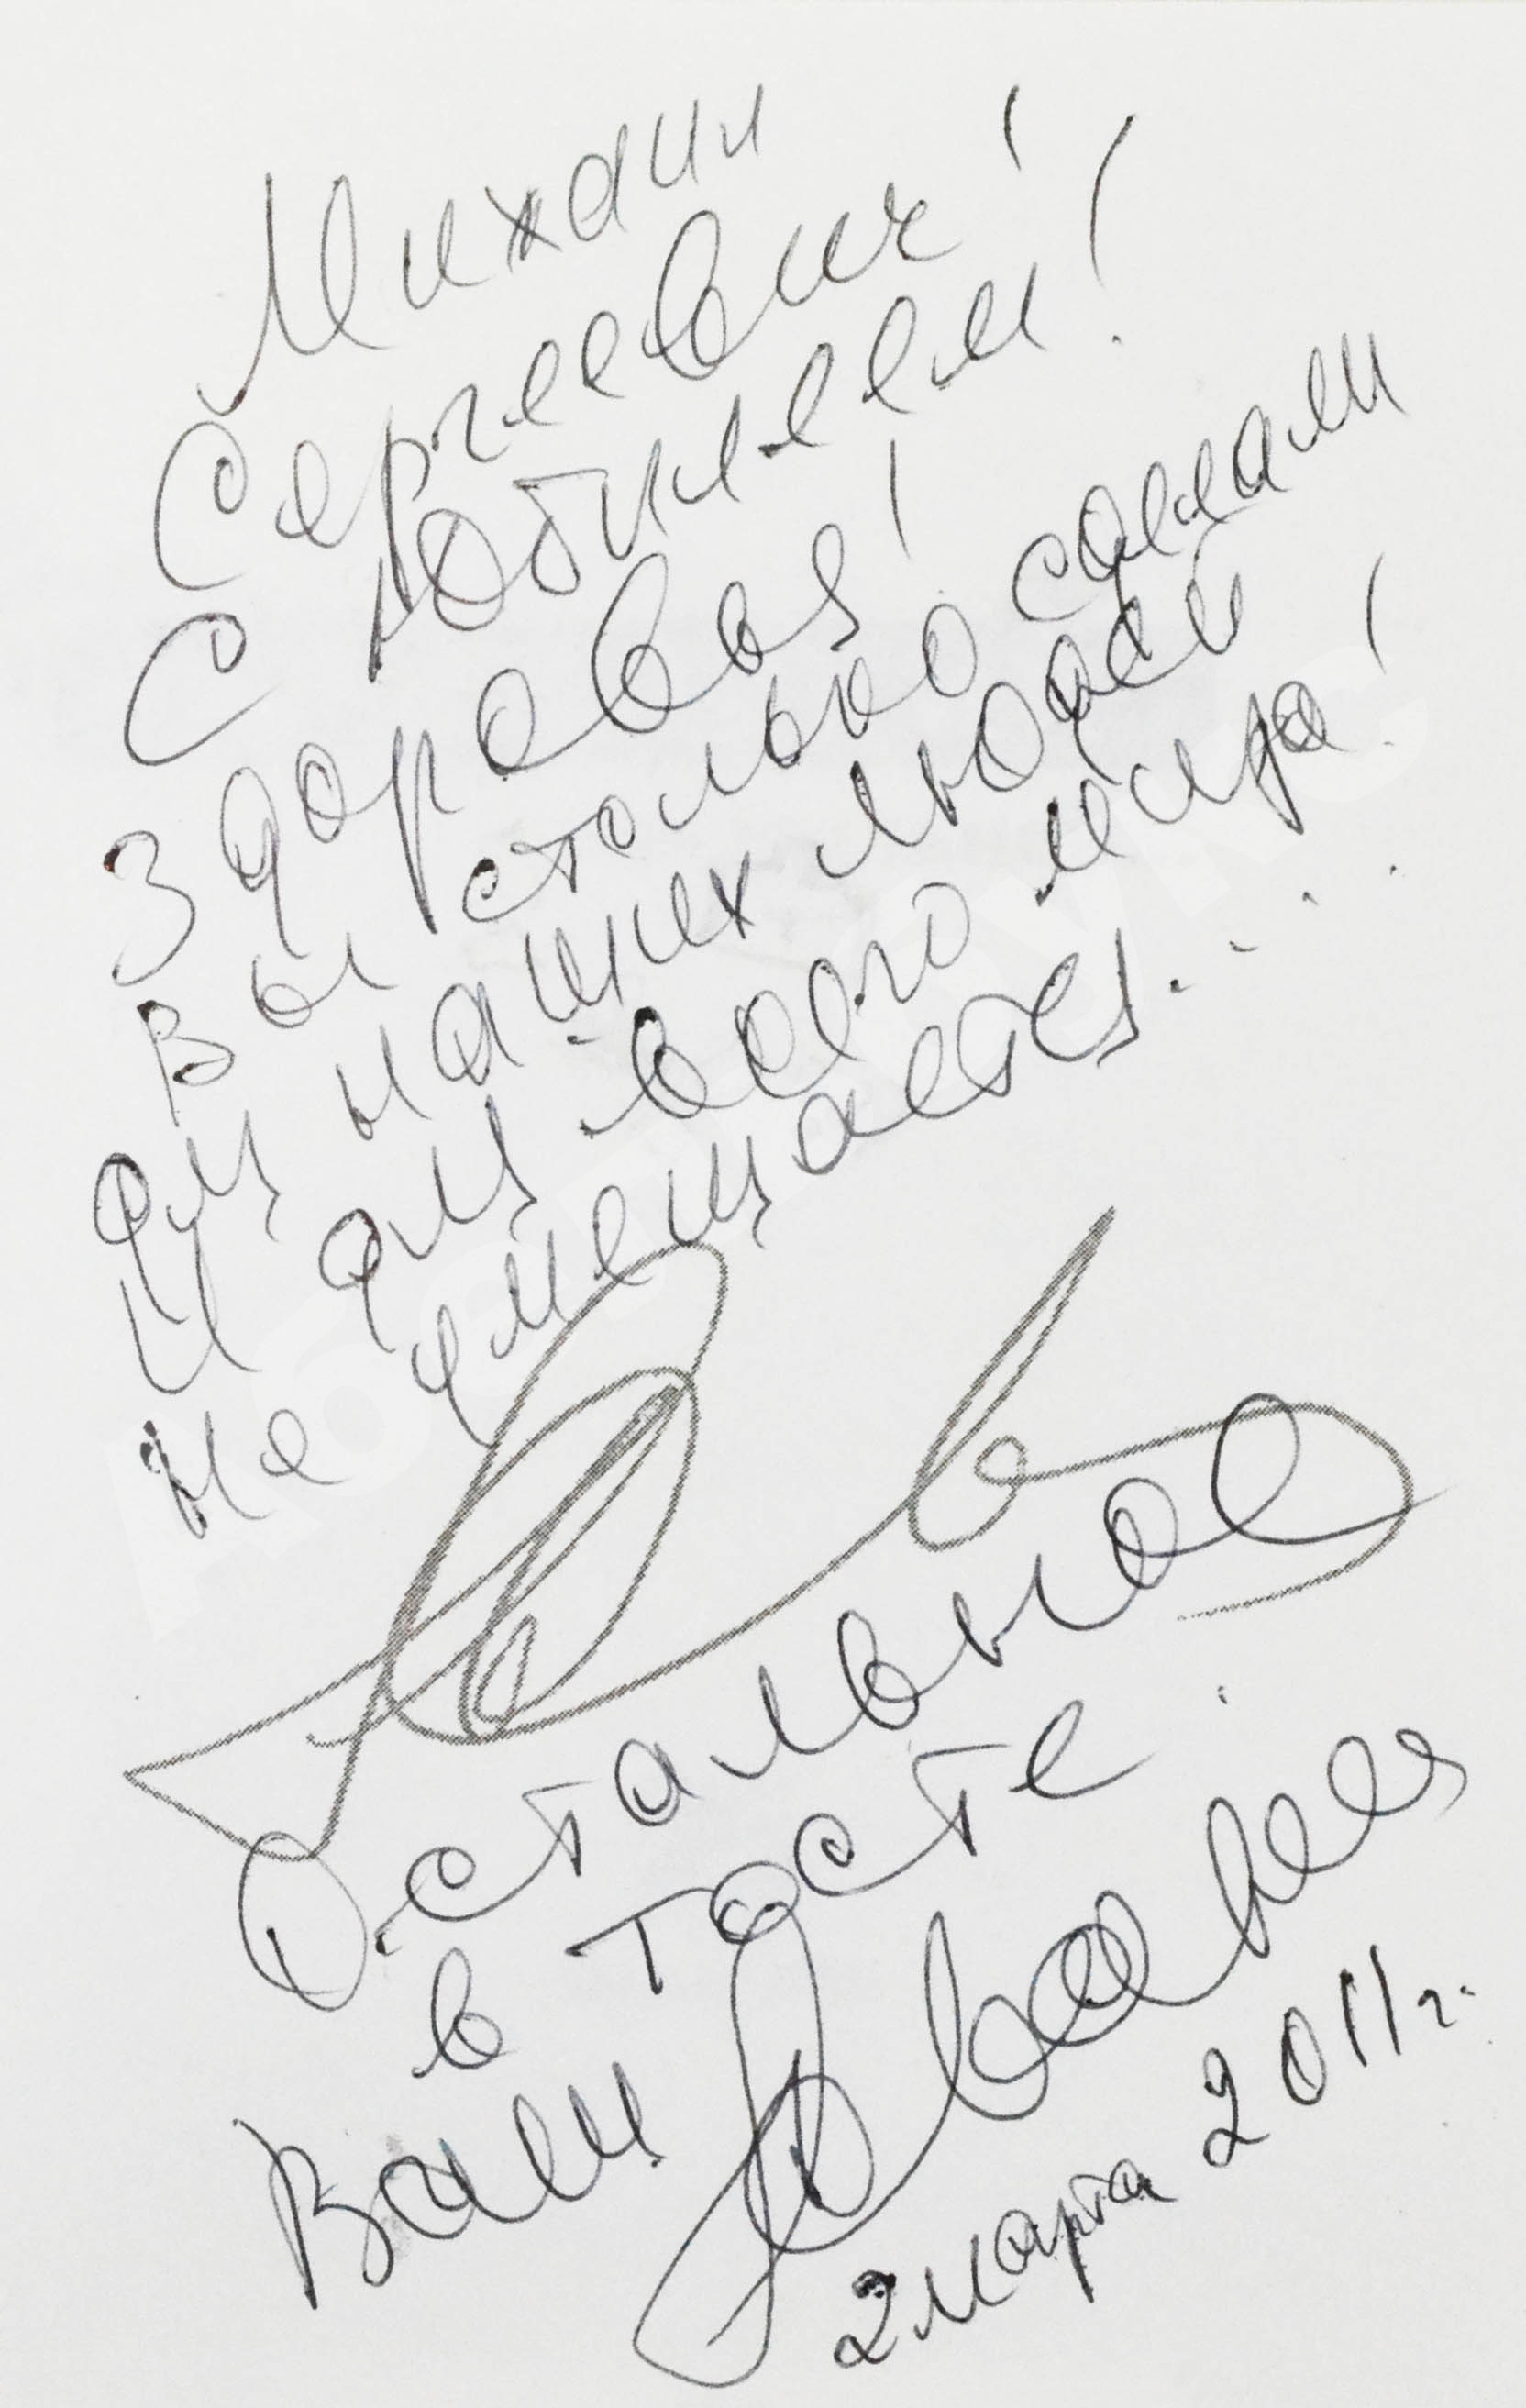 Михаил
Сергеевич!
С Юбилеем!
Здоровья!
Вы столько сделали
для наших людей
и для всего мира!
Не умещается...
Остальное
в тосте.
Ваш
2 марта 2011г.